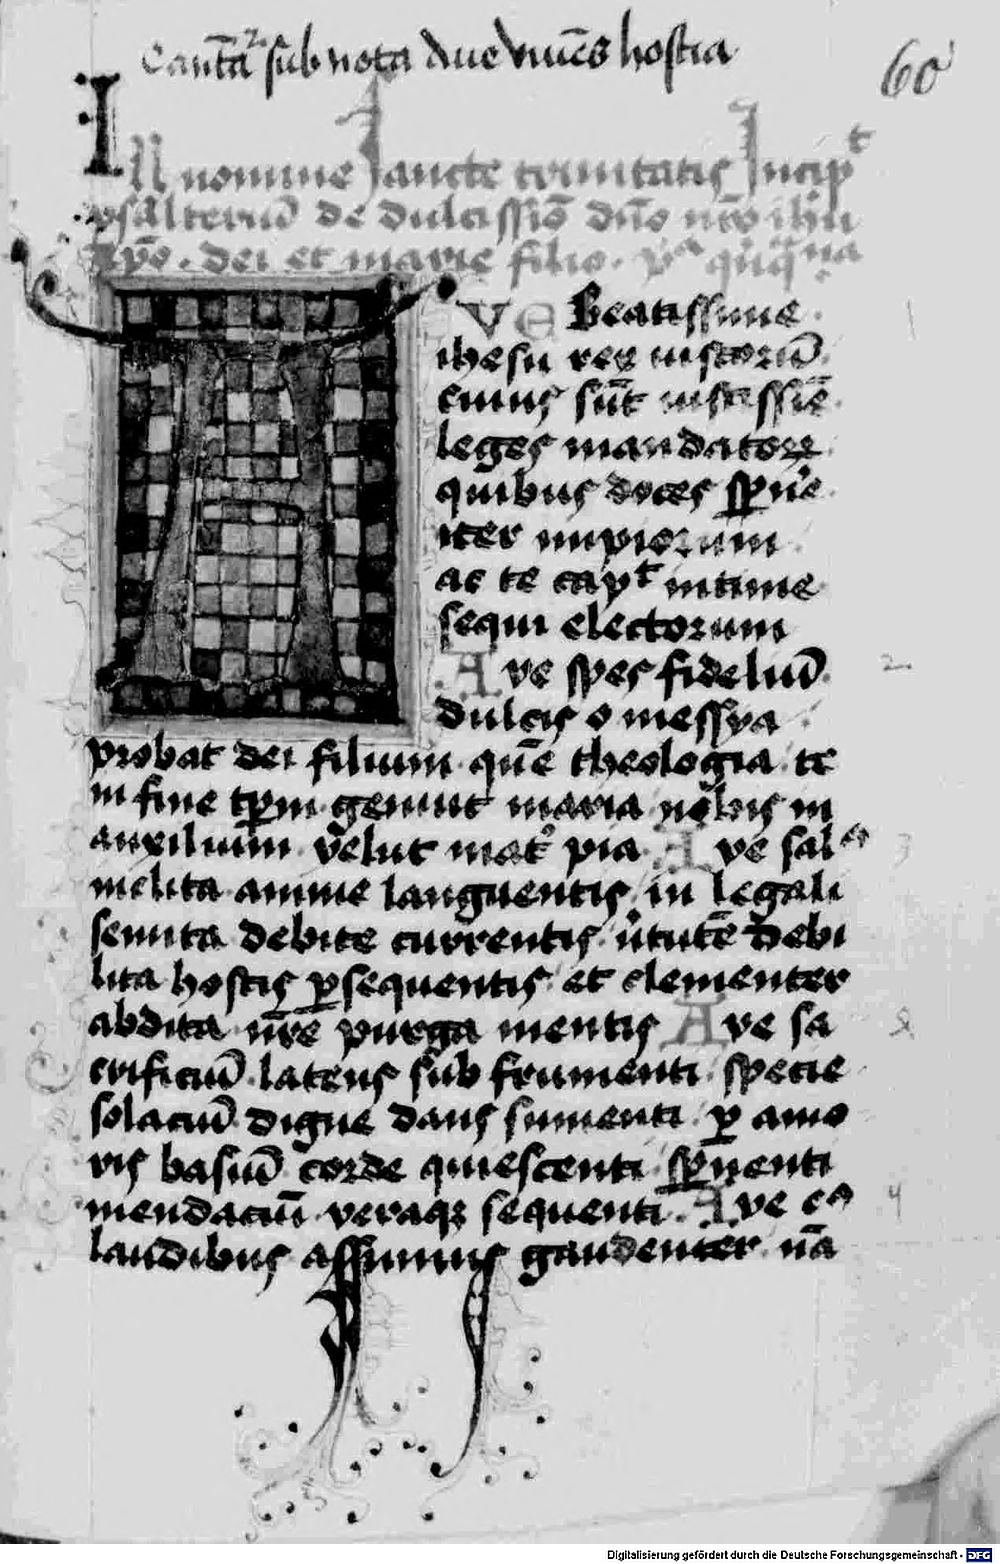 Cantat͛ sub nota Aue viuēs hostia
60
In nomine sancte trinitatis Incipᵗ
psalteriū de dulcissīo dn̄o nr̄o ihū
xp̄o . dei et marie filio . pᵃ
Ave Beatissime
ihesu rex iustorū
cuius sūt iustissīe
leges mandatorꝝ
quibus doces
iter impiorum
ac te intime
sequi electorum
Ave spes fideliū
dulcis o messya
probat dei filium quē theologia te
in fine tp̄m genuit maria nobis in
auxilium velut mat͛ pia Ave sal
melita anime languentis in legali
semita debite currentis v͛tutē debi
lita hostis ꝑsequentis et clementer
abdita nr̄e purga mentis Ave sa
crificiū latens sub frumenti specie
solaciū digne dans sumenti ꝑ amo
ris basiū corde quiescenti
mendaciū veraqꝫ sequenti . Ave
laudibus assumus gaudenter nā
1
2
3
4